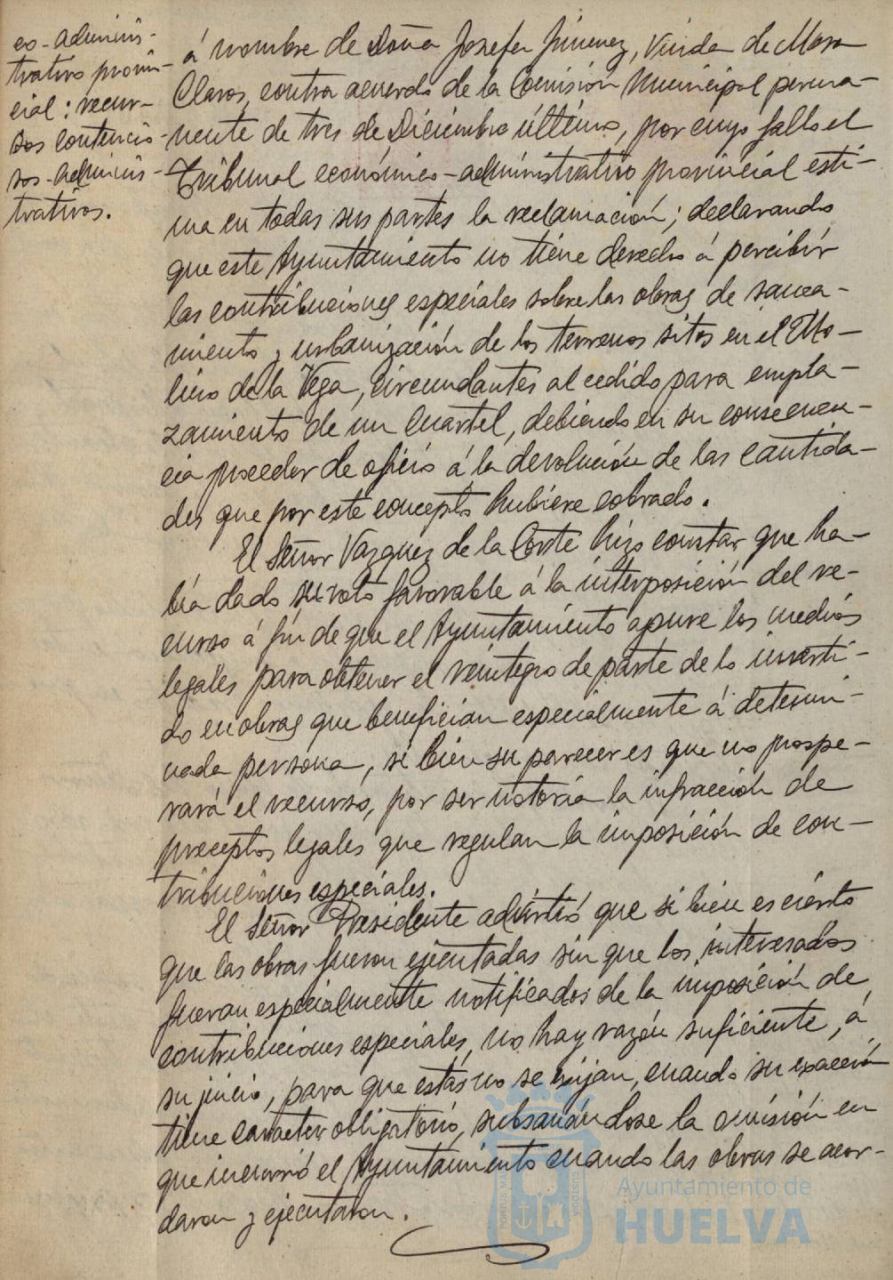 co-adminis-
trativo provin-
cial: recur-
sos contencio-
sos-adminis-
trativos.
á nombre de Doña Josefa Jimenez, Viuda de Mora
Claros, contra acuerdo de la Comisión Municipal perma-
nente de tres de Diciembre último, por cuyo fallo el
Tribunal económico-administrativo provincial esti-
ma en todas sus partes la reclamación; declarando
que este Ayuntamiento no tiene derecho á percibir
las contribuciones especiales sobre las obras de sanea-
miento y urbanización de los terrenos sitos en el Mo-
lino de la Vega, circundantes al cedido para empla-
zamiento de un Cuartel, debiendo en su consecuen-
cia proceder de oficio á la devolución de las cantida-
des que por este concepto hubiere cobrado.
El Señor Vazquez de la Corte hizo constar que ha-
bía dado su voto favorable á la interposición del re-
curso á fin de que el Ayuntamiento apure los medios
legales para obtener el reintegro de parte de lo inverti-
do en obras que benefician especialmente á determi-
nada persona, si bien su parecer es que no prospe-
rará el recurso, por ser notoria la infracción de
preceptos legales que regulan la imposición de con-
tribuciones especiales.
El Señor Presidente advirtió que si bien es cierto
que las obras fueron ejecutadas sin que los interesados
fueran especialmente notificados de la imposición de
contribuciones especiales, no hay razón suficiente, á
su juicio, para que estas no se exijan, cuando su exacción
tiene caracter obligatorio, subsanándose la omisión en
que incurrió el Ayuntamiento cuando las obras se acor-
daron y ejecutaron.
Ayuntamiento de
HUELVA